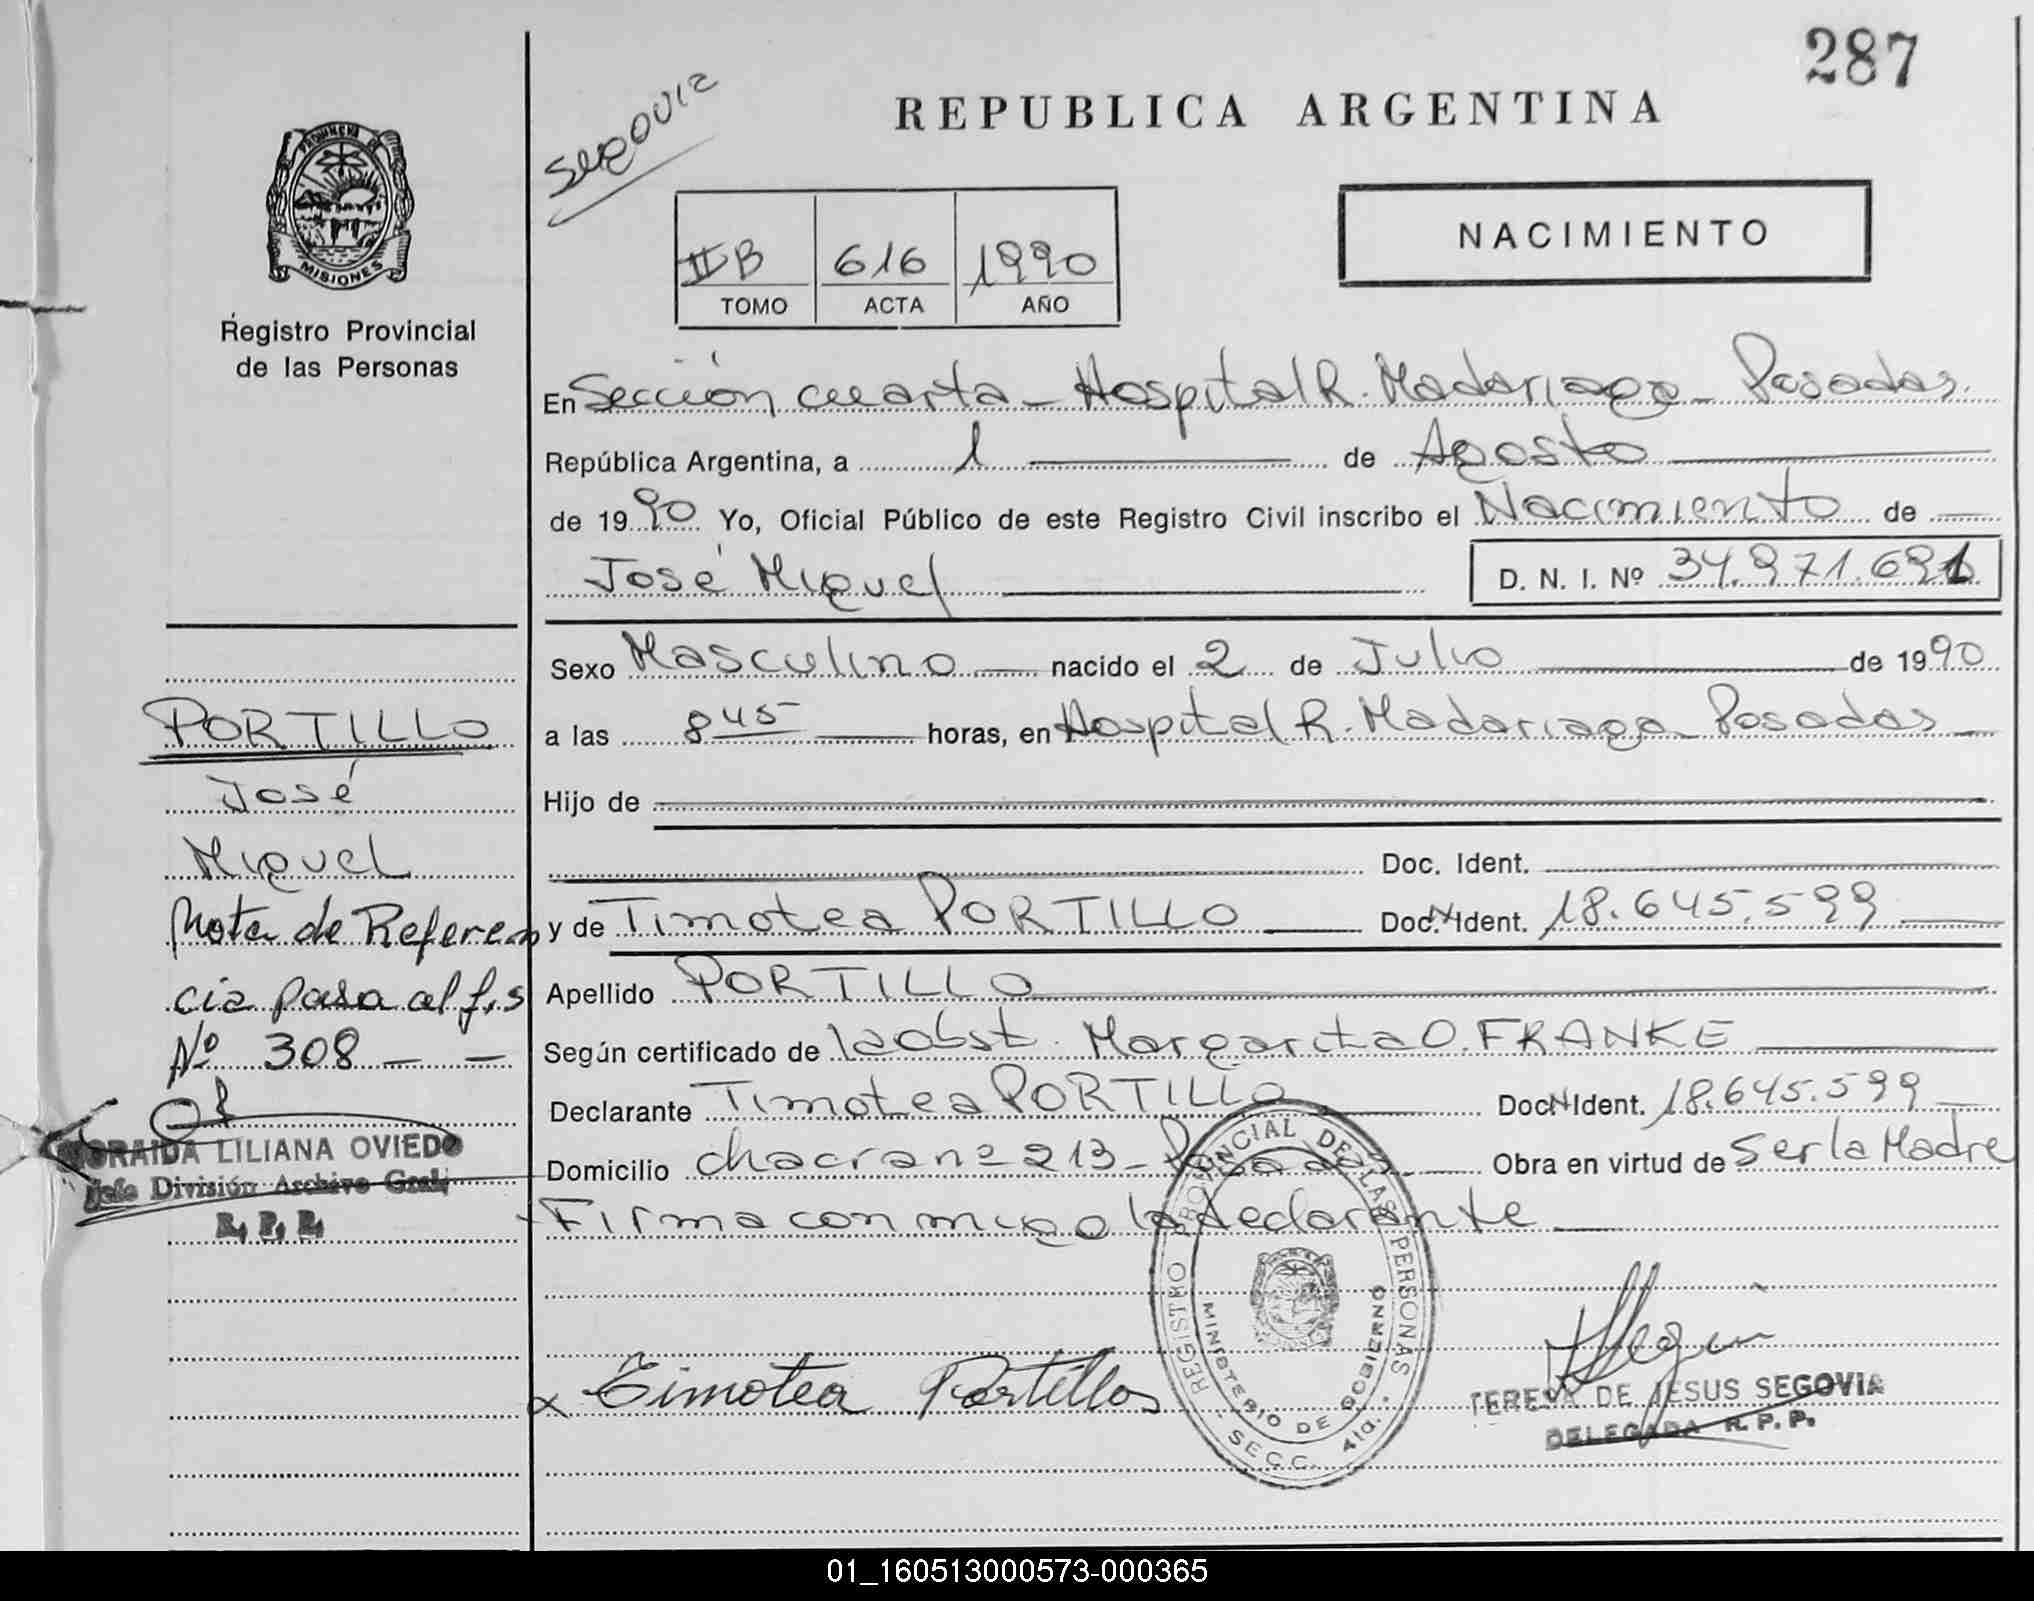 287
Segovia
REPUBLICA ARGENTINA
PROVINCIA
MISIONES
Registro Provincial
de las Personas
IIB 616 1990
TOMO ACTA AÑO
NACIMIENTO
En Sección cuarta - Hospital R. Madariaga - Posadas.
República Argentina, a 1 de Agosto
de 1990 Yo, Oficial Público de este Registro Civil inscribo el Nacimiento de
José Miguel D. N. I. Nº 34.971.691
Sexo Masculino nacido el 2 de Julio de 1990
a las 8 45 horas, en Hospital R. Madariaga - Posadas
Hijo de
Doc. Ident.
y de Timotea PORTILLO Doc. N Ident. 18.645.599
Apellido PORTILLO
Según certificado de la obst. Margarita O. FRANKE
Declarante Timotea PORTILLO Doc N Ident. 18.645.599
Domicilio chacra nº 213 - Posadas. Obra en virtud de Ser la Madre
Firma conmigo la declarante
PORTILLO
José
Miguel
Nota de Referen
cia pasa al fs
Nº 308
MORAIDA LILIANA OVIEDO
Jefe División Archivo Gral.
R. P. P.
REGISTRO PROVINCIAL DE LAS PERSONAS
MINISTERIO DE GOBIERNO
SECC. 4ta.
x Timotea Portillos
TERESA DE JESUS SEGOVIA
DELEGADA R. P. P.
01_160513000573-000365